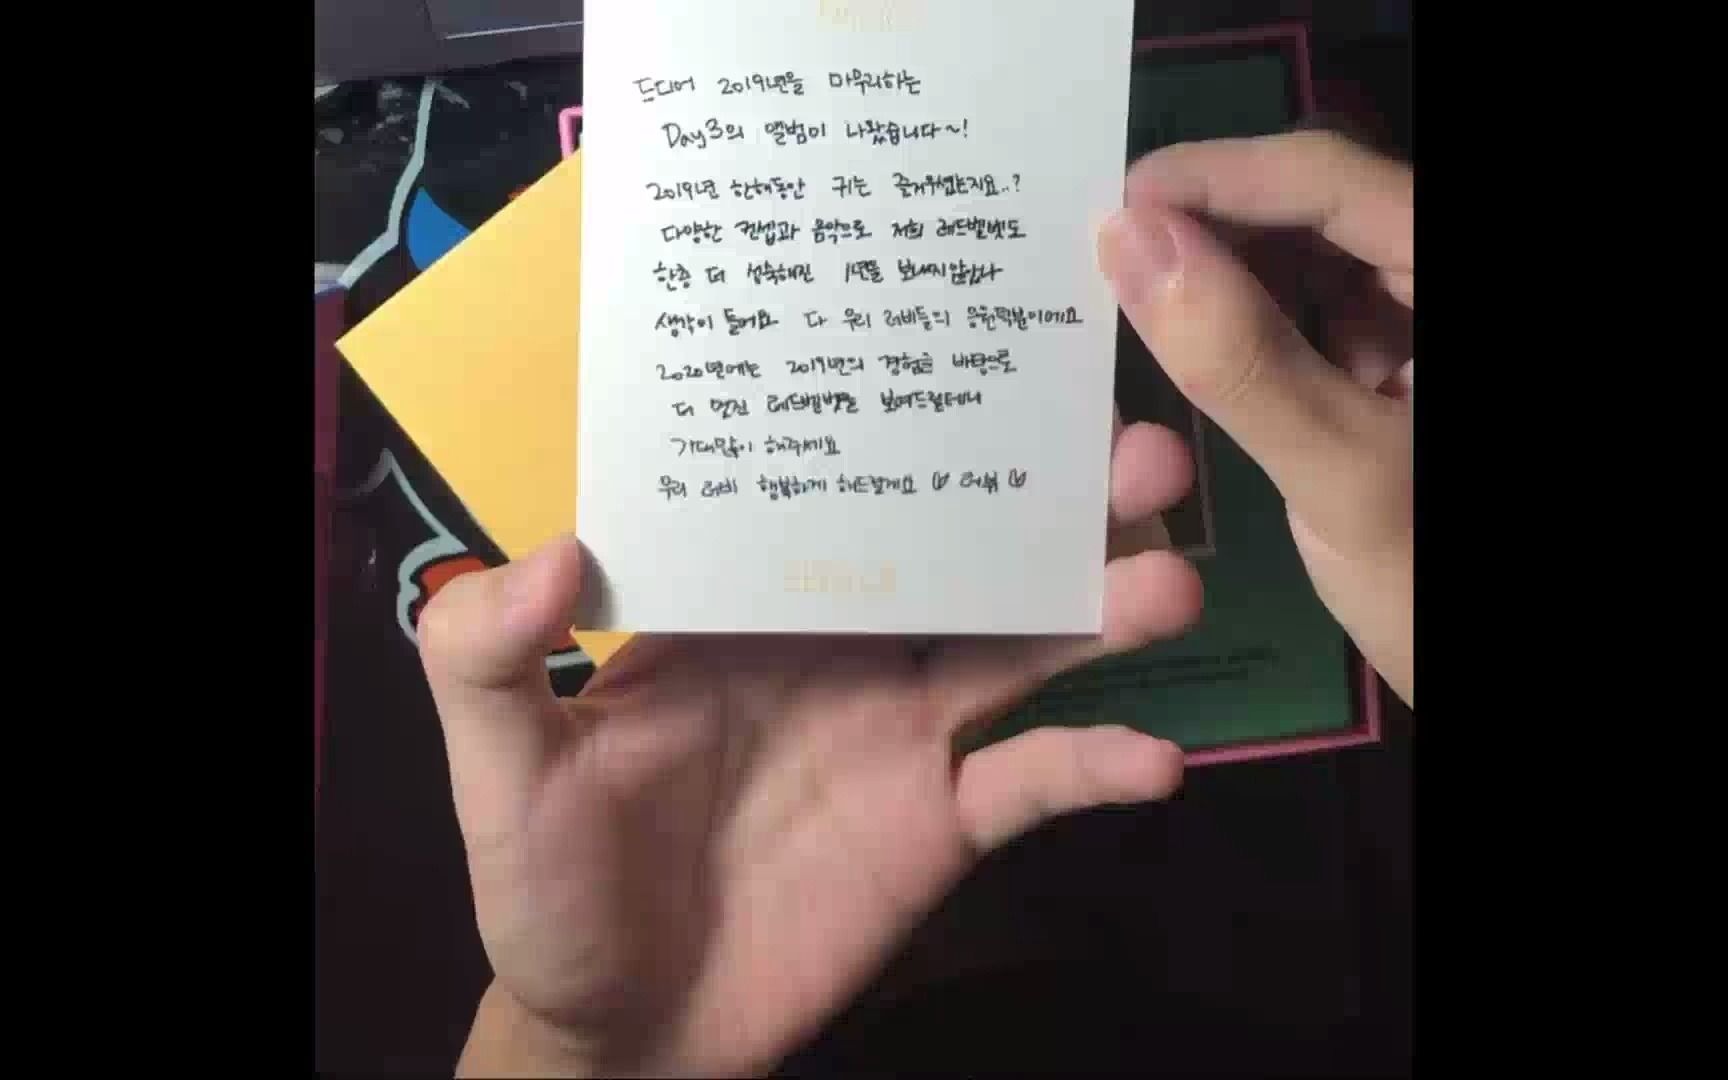 드디어 2019년을 마무리하는
Day3의 앨범이 나왔습니다~!
2019년 한해동안 귀는 즐거우셨는지요..?
다양한 컨셉과 음악으로 저희 레드벨벳도
한층 더 성숙해진 1년을 보내지않았나
생각이 들어요 다 우리 러비들의 응원덕분이에요
2020년에는 2019년의 경험을 바탕으로
더 멋진 레드벨벳을 보여드릴테니
기대많이 해주세요
우리 러비 행복하게 해드릴게요 ♡ 러뷰 ♡